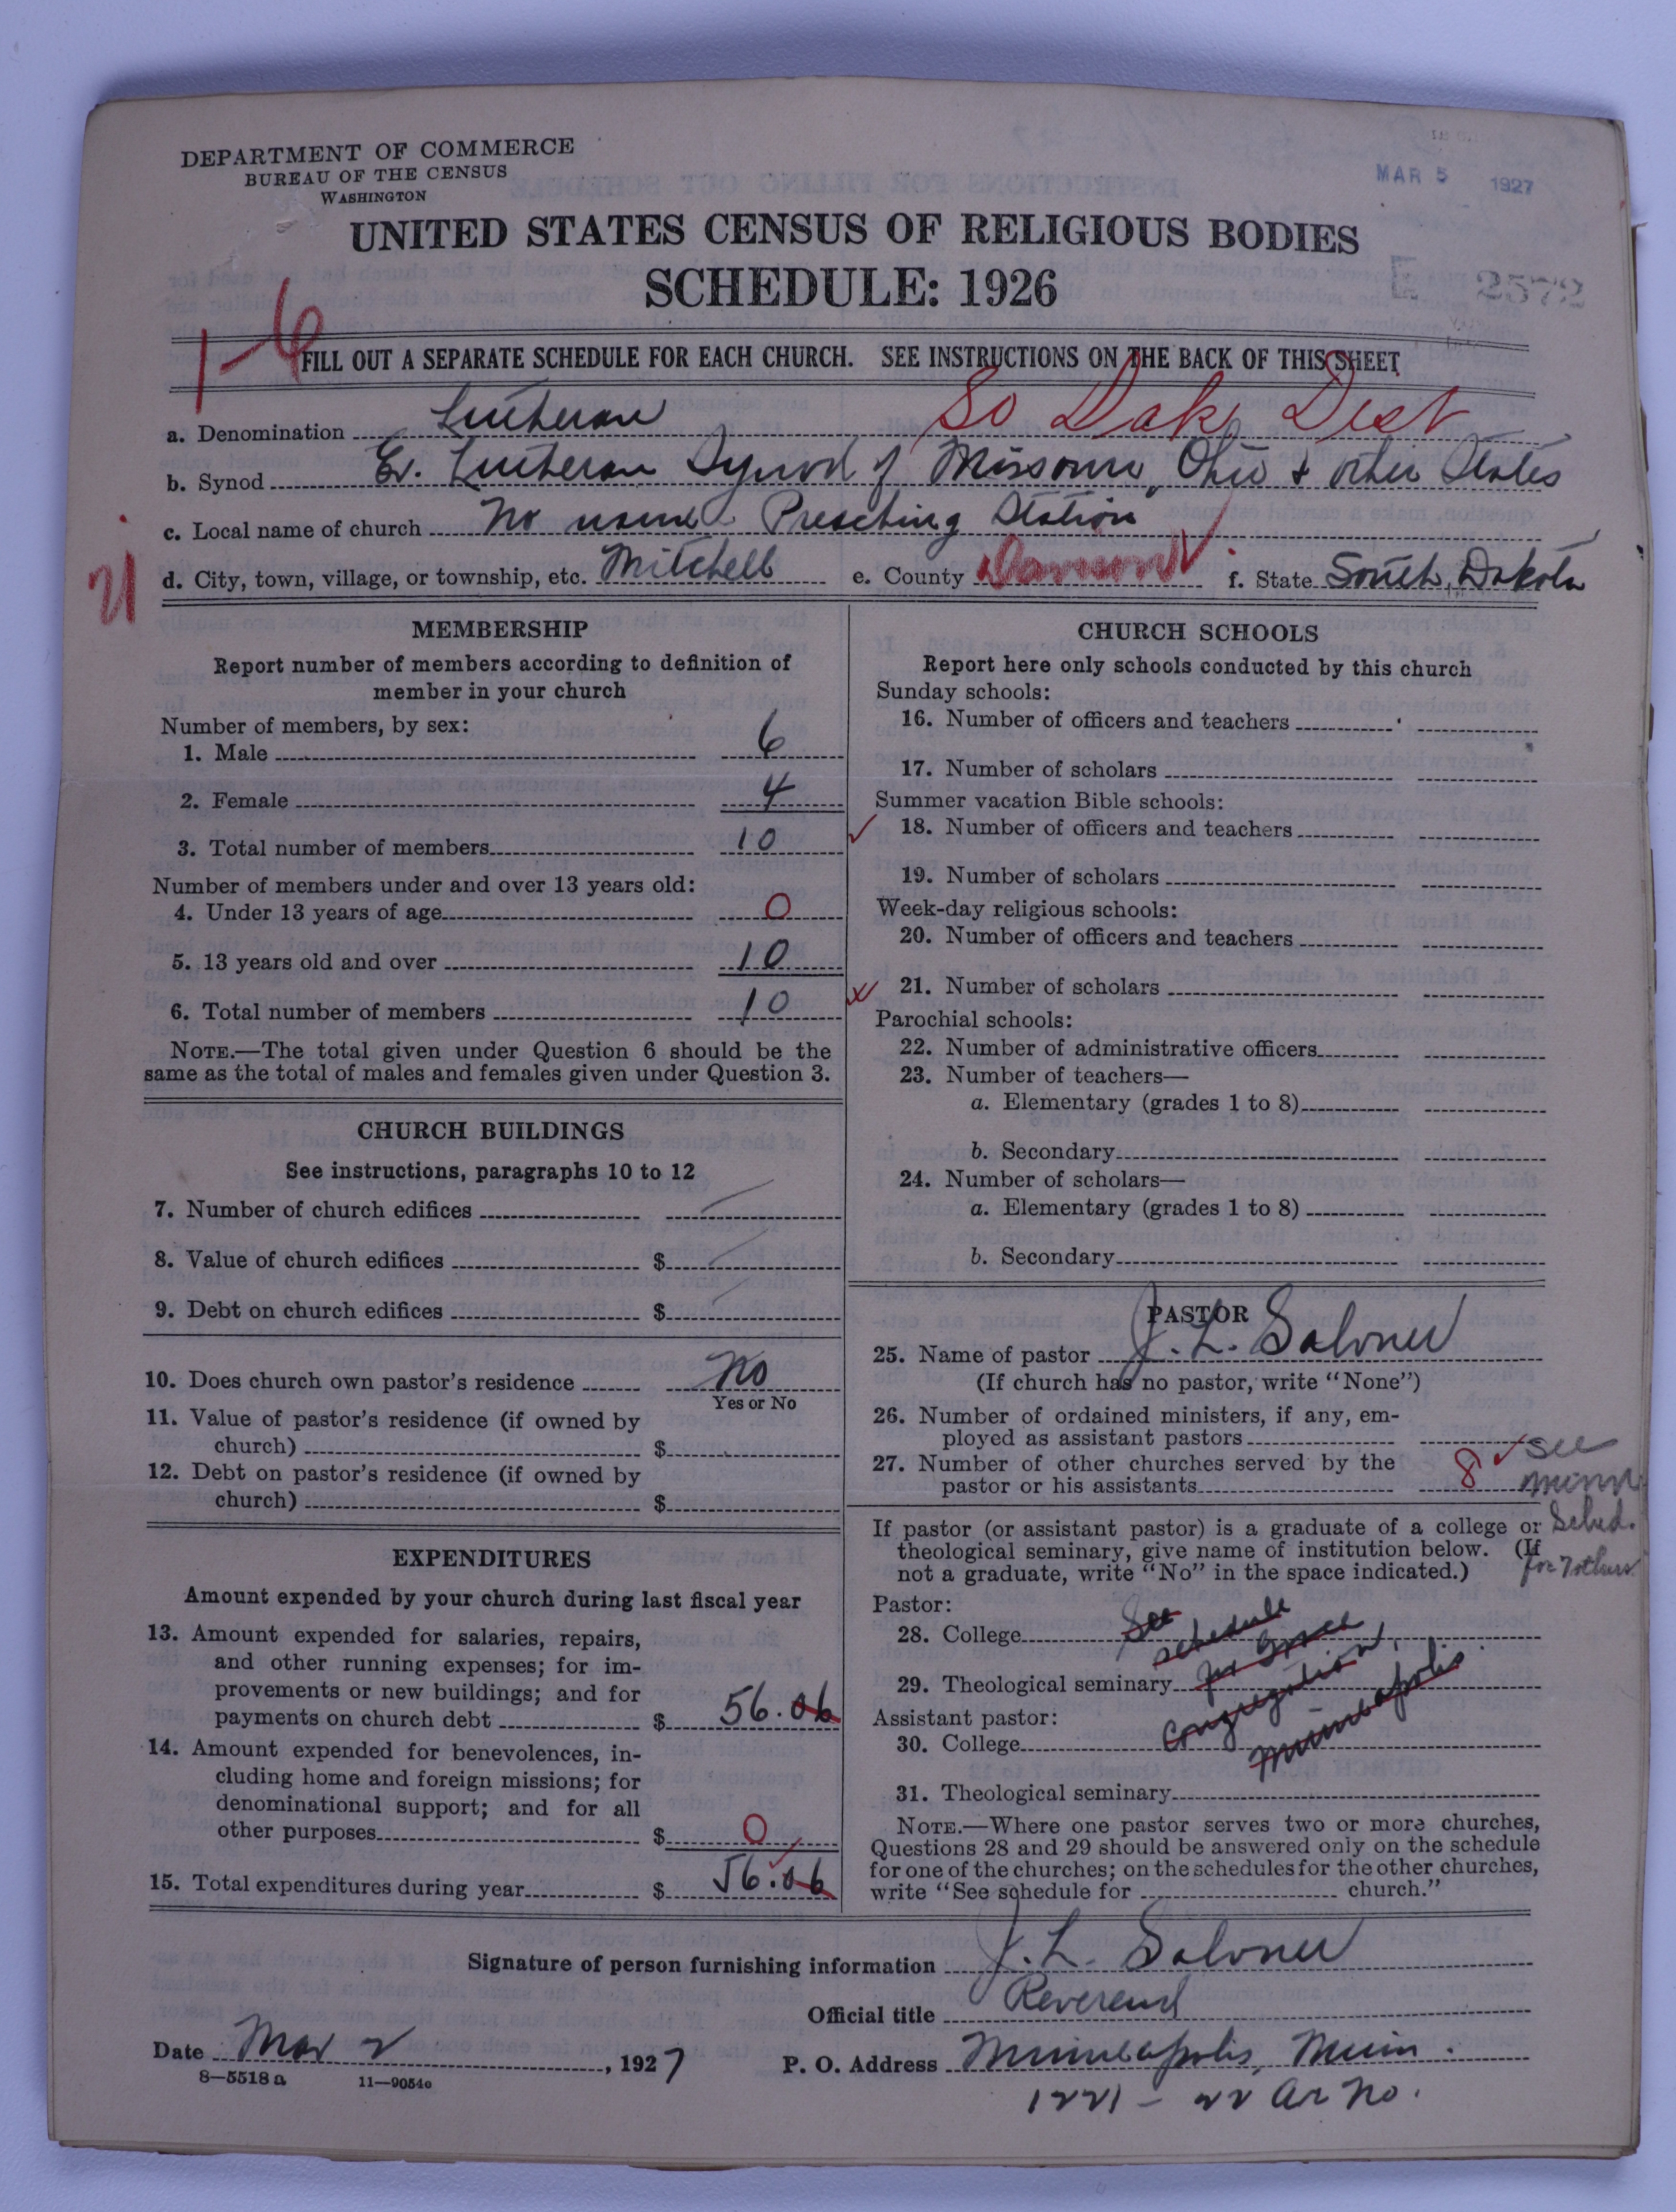 DEPARTMENT OF COMMERCE
BUREAU OF THE CENSUS
WASHINGTON
MAR 5 1927
UNITED STATES CENSUS OF RELIGIOUS BODIES
SCHEDULE: 1926
2572
1-6
FILL OUT A SEPARATE SCHEDULE FOR EACH CHURCH. SEE INSTRUCTIONS ON THE BACK OF THIS SHEET
a. Denomination Lutheran So Dak Dist
b. Synod Ev. Lutheran Synod of Missouri, Ohio & other States
c. Local name of church No name Preaching Station
d. City, town, village, or township, etc. Mitchell e. County Davison f. State South Dakota
MEMBERSHIP
Report number of members according to definition of
member in your church
Number of members, by sex:
1. Male 6
2. Female 4
3. Total number of members 10
Number of members under and over 13 years old:
4. Under 13 years of age 0
5. 13 years old and over 10
6. Total number of members 10
NOTE.—The total given under Question 6 should be the
same as the total of males and females given under Question 3.
CHURCH BUILDINGS
See instructions, paragraphs 10 to 12
7. Number of church edifices
8. Value of church edifices $
9. Debt on church edifices $
10. Does church own pastor's residence No
Yes or No
11. Value of pastor's residence (if owned by
church) $
12. Debt on pastor's residence (if owned by
church) $
EXPENDITURES
Amount expended by your church during last fiscal year
13. Amount expended for salaries, repairs,
and other running expenses; for im-
provements or new buildings; and for
payments on church debt $ 56.06
14. Amount expended for benevolences, in-
cluding home and foreign missions; for
denominational support; and for all
other purposes $ 0
15. Total expenditures during year $ 56.06
CHURCH SCHOOLS
Report here only schools conducted by this church
Sunday schools:
16. Number of officers and teachers
17. Number of scholars
Summer vacation Bible schools:
18. Number of officers and teachers
19. Number of scholars
Week-day religious schools:
20. Number of officers and teachers
21. Number of scholars
Parochial schools:
22. Number of administrative officers
23. Number of teachers—
a. Elementary (grades 1 to 8)
b. Secondary
24. Number of scholars—
a. Elementary (grades 1 to 8)
b. Secondary
PASTOR
25. Name of pastor J. L. Salvner
(If church has no pastor, write "None")
26. Number of ordained ministers, if any, em-
ployed as assistant pastors
27. Number of other churches served by the
pastor or his assistants 8 see
Minn
Sched.
for 7 others
If pastor (or assistant pastor) is a graduate of a college or
theological seminary, give name of institution below. (If
not a graduate, write "No" in the space indicated.)
Pastor:
28. College See schedule
29. Theological seminary for Grace
congregation,
Minneapolis
Assistant pastor:
30. College
31. Theological seminary
NOTE.—Where one pastor serves two or more churches,
Questions 28 and 29 should be answered only on the schedule
for one of the churches; on the schedules for the other churches,
write "See schedule for church."
Signature of person furnishing information J. L. Salvner
Official title Reverend
Date Mar 2, 1927 P. O. Address Minneapolis, Minn.
8—5518a 11—9054o
1221 - 22 Av No.